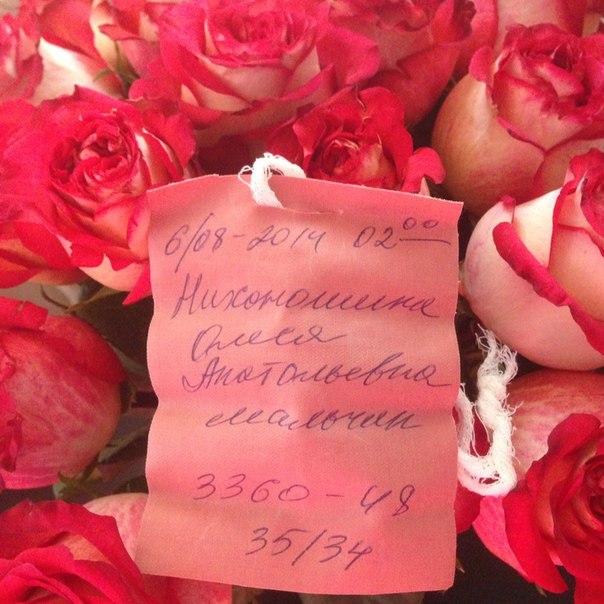 6/08-2014 02⁰⁰
Нихоношина
Олеся
Анатольевна
мальчик
3360-48
35/34